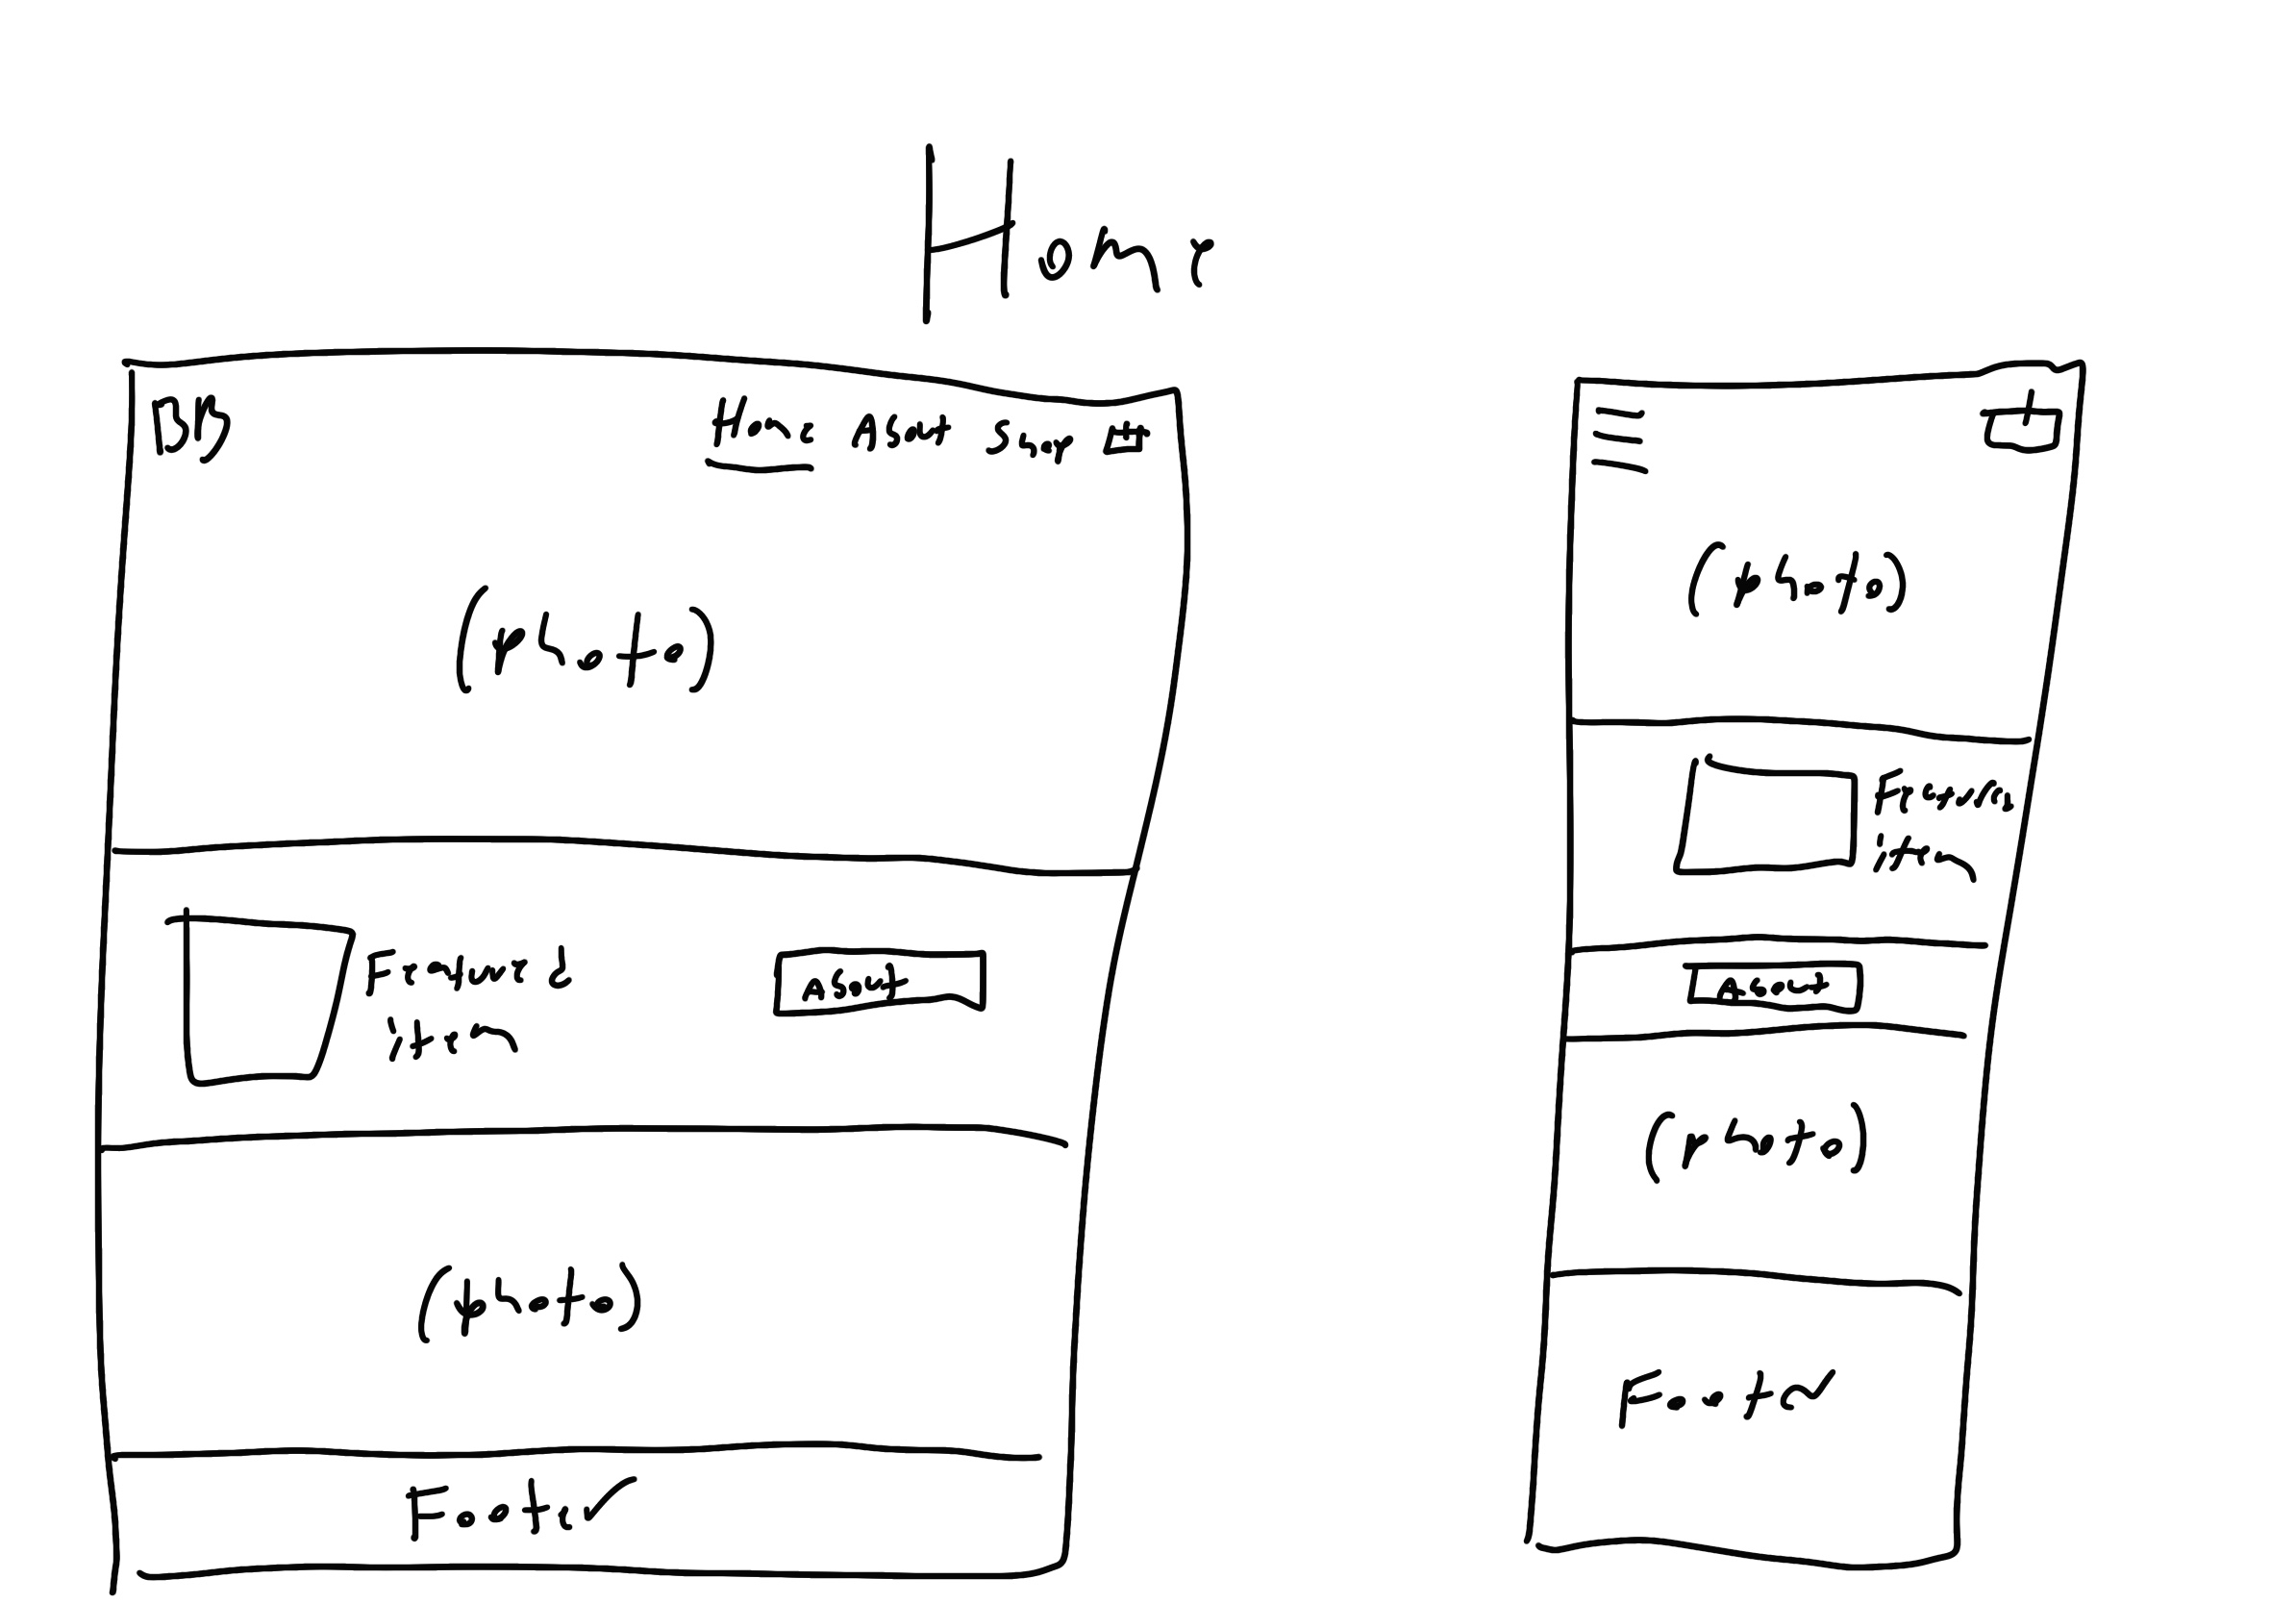 Home
BB
Home About Shop
(photo)
Featured
item
About
(photo)
Footer
(photo)
Featured
item
About
(photo)
Footer